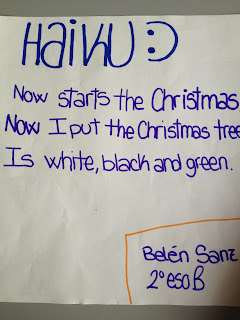 Haiku :)
Now starts the Christmas
Now I put the Christmas tree
Is white, black and green.
Belén Sanz
2º eso B